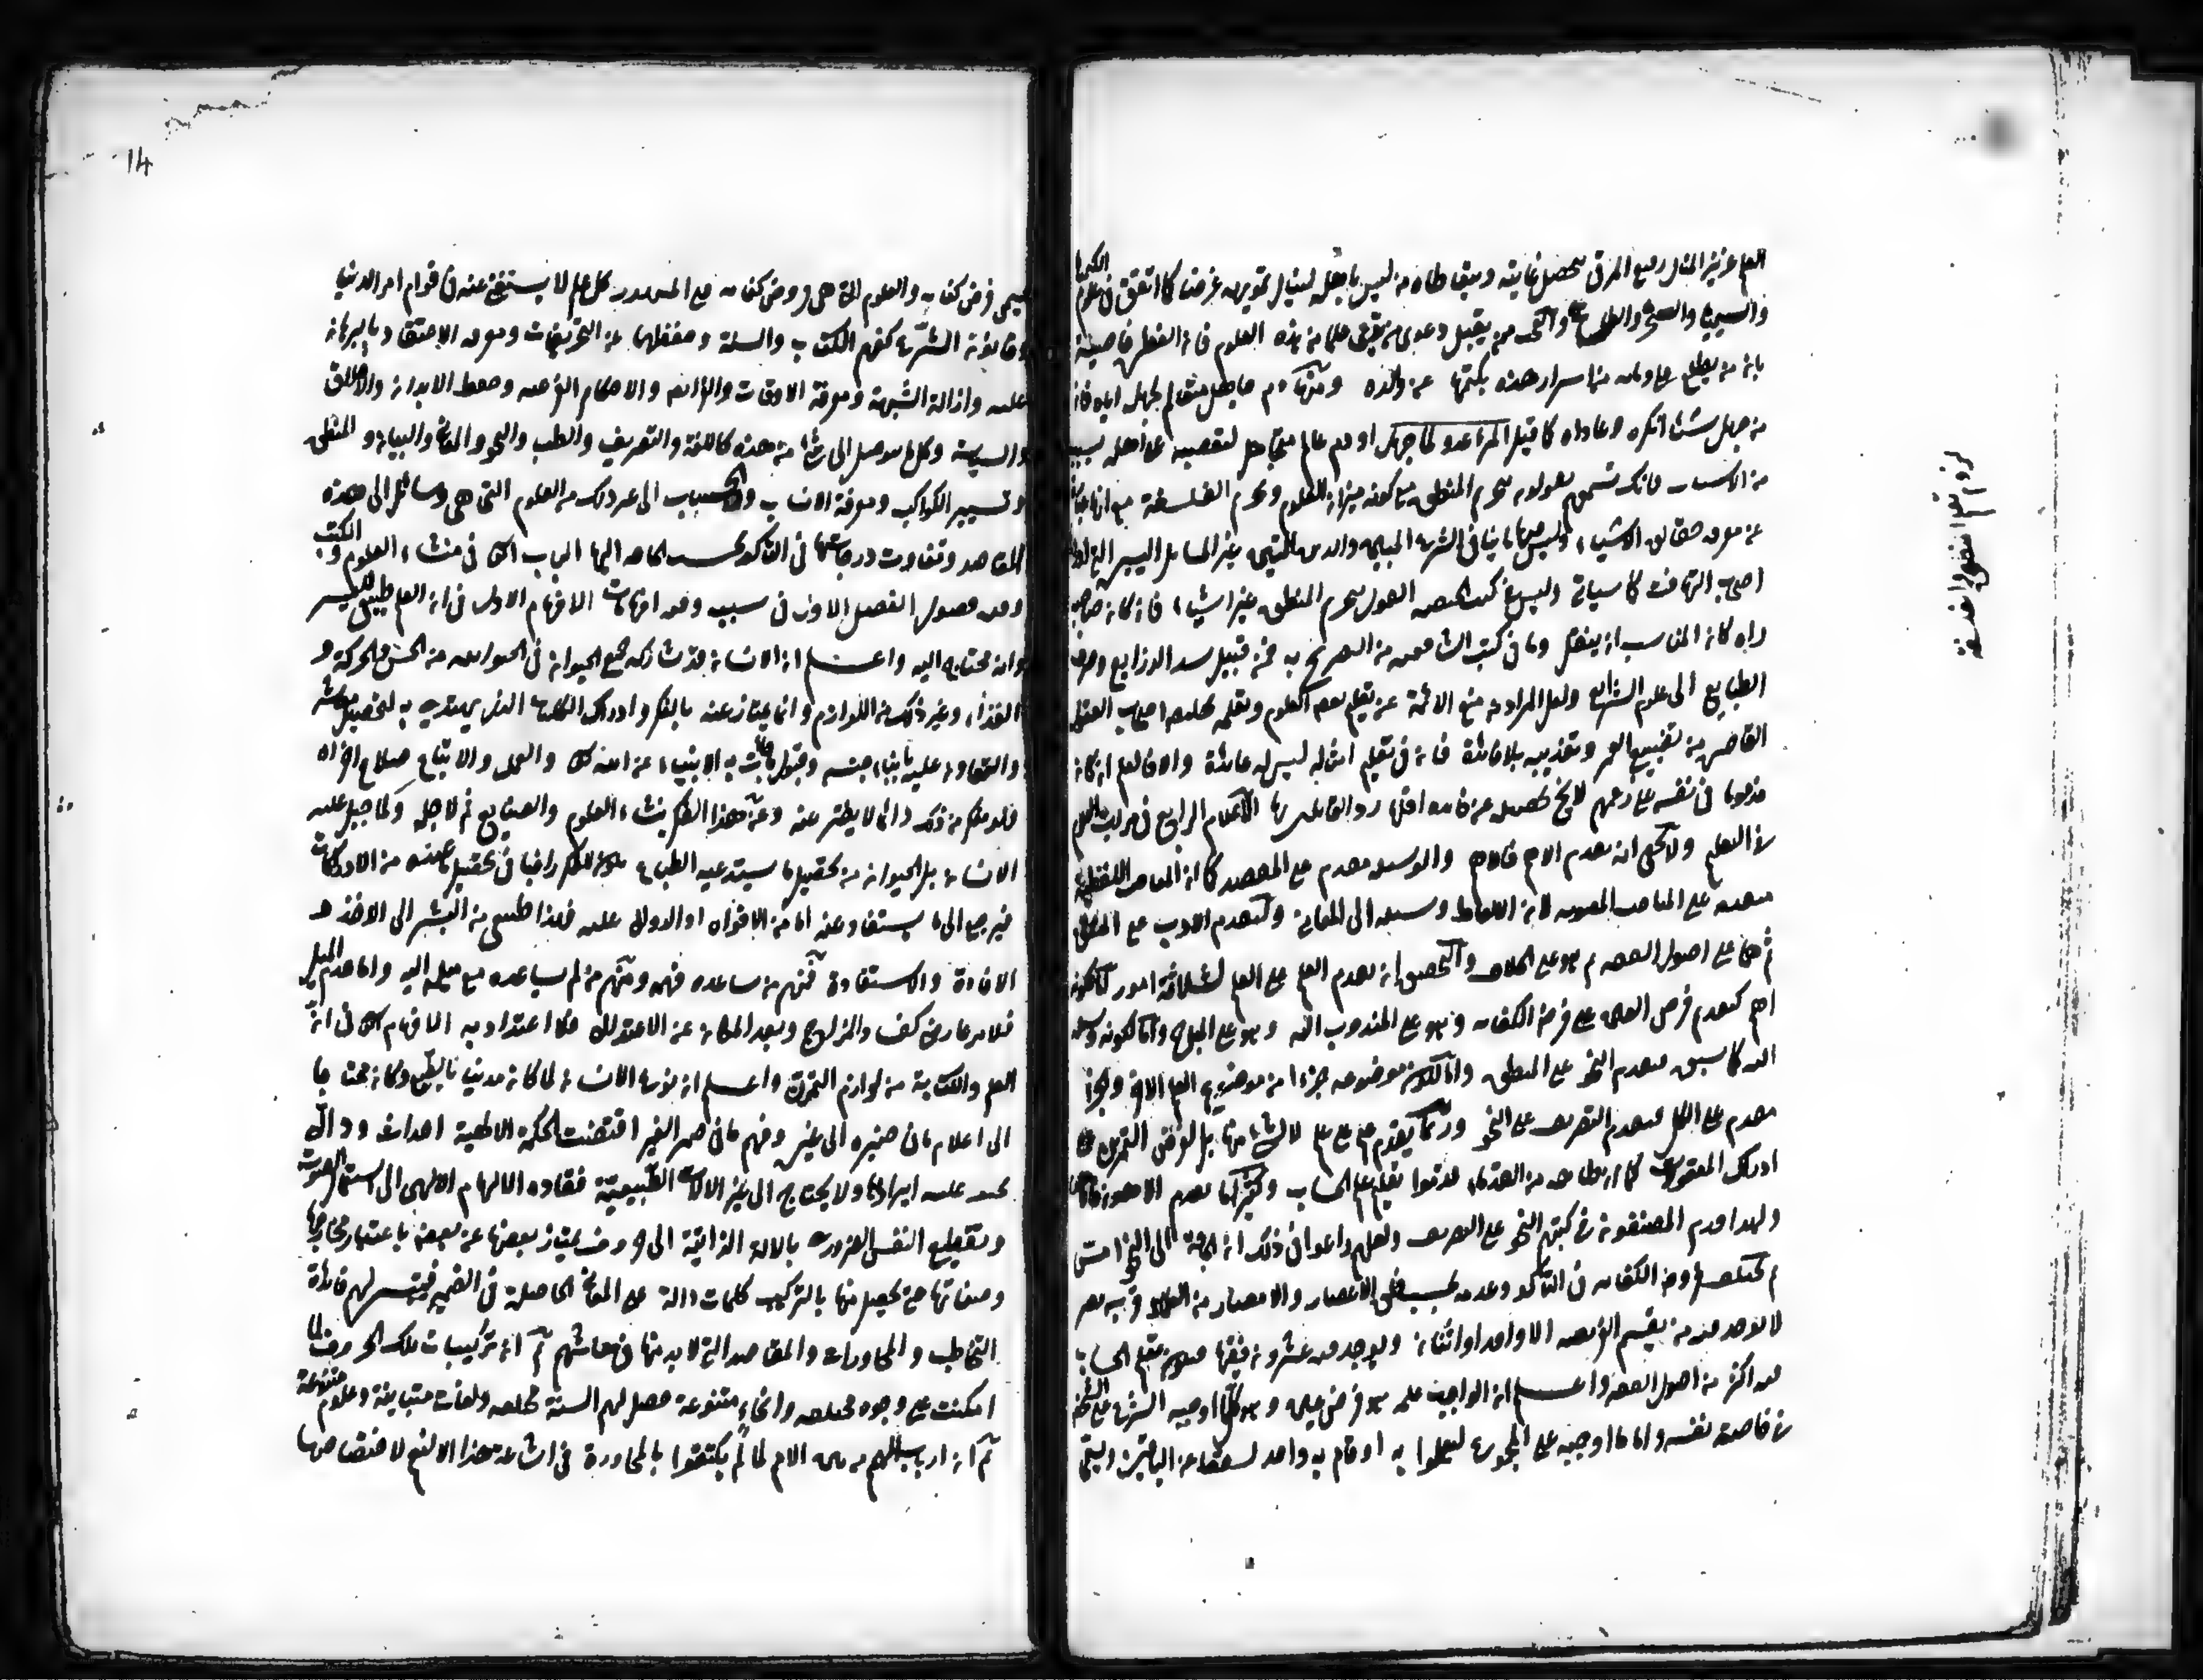 العلم عزيز المنال رفيع المرقى تحصل غايته ويتعاطاه من ليس باهله لينال بتمويهه غرضا كما اتفق في علوم الكيميا
والسيميا والسحر والطلسمات والعجب ممن يقبل دعوى من يدعى علما من هذه العلوم فان الفطرة قاضية
بان من يطلع على ذنابة من اسرار هذه يكتمها عن والده ومنها ذم جاهل متعالم لجهله اياه فان
من جهل شيئا انكره وعاداه كما قيل المرء عدو لما جهله او ذم عالم متجاهل لتعصبه على اهله بسبب
من الاسباب فانك تسمع بتحريم المنطق مع كونه ميزان العلوم وتحريم الفلسفة مع انها عبارة
عن معرفة حقائق الاشياء وليس فيها ما ينافي الشرع المبين والدين المتين غير المسائل اليسيرة التي اوردها
اصحاب التهافت كما سياتي وليس في كتب الحنفية القول بتحريم المنطق غير الاشباه فان كان صاحبه
راه كان المناسب ان ينقل وما في كتب الشافعية من التصريح به فمن قبيل سد الذرايع وصرف
الطبايع الى علوم الشرايع ولعل المراد من منع الائمة عن تعليم بعض العلوم وتعلمه تخليص اصحاب العقول
القاصرين من تضييع العمر وتعذيبه بلا فائدة فان في تعليم امثاله ليس له عائدة والا فالعلم ان كان
مذموما في نفسه على زعمهم لا يخلو تحصيله عن فائدة اقلها رد القائلين بها الاعلام الرابع في مراتب العلم
في التعلم ولا يخفى انه يقدم الاهم فالاهم والوسيلة مقدم على المقصد كما ان المباحث اللفظية
مقدمة على المباحث المعنوية لان الالفاظ وسيلة الى المعاني وتقدم الادب على المنطق
ثم هما على اصول الفقه ثم هو على الخلاف والتحقيق ان تقدم العلم على العلم لثلاثة امور اما لكونه
اهم كتقدم فرض العين على فرض الكفاية وهو على المندوب اليه وهو على المباح واما لكونه وسيلة
اليه كما سبق فيقدم النحو على المنطق واما لكون موضوعه جزءا من موضوع العلم الاخر والجزء
مقدم على الكل فيقدم التصريف على النحو وربما يقدم علم على علم لا لشئ منها بل لغرض التمرين على
ادراك المعقولات كما ان طائفة من القدماء قدموا تعليم علم الحساب وكثيرا ما يقدم الاهون فالاهون
ولهذا قدم المصنفون في كتبهم النحو على التصريف ولعلهم راعوا في ذلك ان الحاجة الى النحو امس
ثم تختلف فروض الكفاية في التأكد وعدمه بحسب خلو الاعصار والامصار من العلماء فرب مصر
لا يوجد فيه من يقسم الفريضة الا واحد او اثنان ويوجد فيه عشرون فقيها فيكون تعلم الحساب
فيه اكثر من اصول الفقه واعلم ان الواجب علمه هو فرض عين وهو كل ما اوجبه الشرع على الشخص
في خاصة نفسه واما ما اوجبه على المجموع ليعملوا به لو قام به واحد لسقط عن الباقين ويسمى
لزوم تعلم المنطق والفلسفة
14
يسمى فرض كفاية والعلوم التي هي فروض كفاية على المشهور كل علم لا يستغنى عنه في قوام امر الدنيا
وقانون الشرع كفهم الكتاب والسنة وحفظهما عن التحريفات ومعرفة الاعتقاد بالبرهان
عليه وازالة الشبهة ومعرفة الاوقات والفرائض والاحكام الفرعية وحفظ الابدان والاخلاق
والسياسة وكل ما يتوصل الى شئ من هذه كاللغة والتصريف والطب والنحو والمعاني والبيان والمنطق
وتسيير الكواكب ومعرفة الانساب والحساب الى غير ذلك من العلوم التي هي وسائل الى هذه
المقاصد وتفاوت درجاتها في التاكد بحسب الحاجة اليها الباب الثاني في منشاء العلوم والكتب
وفيه فصول الفصل الاول في سببه وفيه افهامات الافهام الاول في ان العلم طبيعي للبشر
وانه محتاج اليه واعلم ان الانسان قد شاركه جميع الحيوان في حيوانيته من الحس والحركة و
الغذاء وغير ذلك من اللوازم وانما يمتاز عنه بالفكر وادراك الكليات الذي يهتدي به لتحصيل معاشه
والتعاون عليه بابناء جنسه وقبول ما جاءت به الانبياء عن الله تعالى والعمل والاتباع صلاح اخراه
فهو مفكر في ذلك دائما لا يفتر عنه وعن هذا الفكر ينشاء العلوم والصنايع ثم لاجله ولما جبل عليه
الانسان بل الحيوان من تحصيل ما يستدعيه الطباع يكون الفكر راغبا في تحصيل ما ليس عنده من الادراكات
فيرجع الى ما يستفاد عنه اما من الافواه او الدوال عليه فهذا طبيعي من البشر الى الاخذ و
الافادة والاستفادة فمنهم من ساعده فهمه ومنهم من لم يساعده مع ميله اليه واما عدم الميل
فلامر عارض كفساد المزاج وبعد المكان عن الاعتدال فلا اعتداد به الافهام الثاني في ان
العلم والكتابة من لوازم التمدن واعلم ان نوع الانسان لما كان مدنيا بالطبع وكان محتاجا
الى اعلام ما في ضميره الى غيره وفهم ما في ضمير الغير اقتضت الحكمة الالهية احداث دوال
يخف عليه ايرادها ولا يحتاج الى غير الالات الطبيعية فقاده الالهام الالهي الى استعمال الصوت
وتقطيع النفس الضروري بالالة الذاتية الى حروف يمتاز بعضها عن بعض باعتبار مخارجها
وصفاتها حتى يحصل منها بالتركيب كلمات دالة على المعاني الحاصلة في الضمير فيتيسر لهم فائدة
التخاطب والمحاورات والمقاصد التي لا بد منها في معاشهم ثم ان تركيبات تلك الحروف لما
امكنت على وجوه مختلفة وانحاء متنوعة حصل لهم السنة مختلفة ولغات متباينة وعلوم متنوعة
ثم ان ارباب الهمم من بين الامم لما لم يكتفوا بالمحاورة في اشاعة هذا النفع لاختصاصها